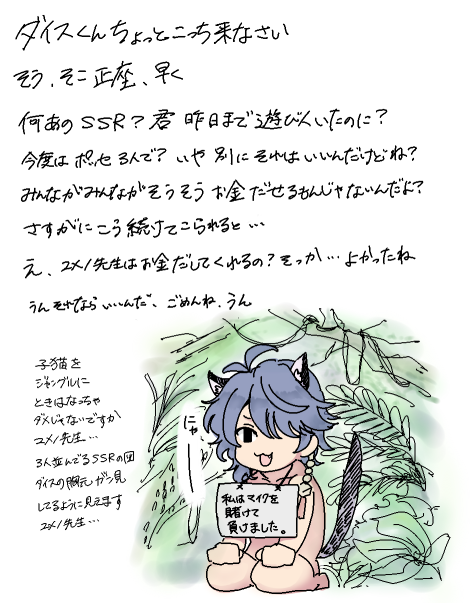 ダイスくんちょっとこっち来なさい
そう、そこ正座、早く
何あのSSR？君昨日まで遊び人いたのに？
今度はポッセ3人で？いや別にそれはいいんだけどね？
みんながみんながそうそうお金だせるもんじゃないんだよ？
さすがにこう続けてこられると…
え、ユメノ先生はお金だしてくれるの？そっか…よかったね
うんそれならいいんだ、ごめんね、うん
子猫を
ジャングルに
ときはなっちゃ
ダメじゃないですか
ユメノ先生…
3人並んでるSSRの図
ダイスの胸元ガン見
してるように見えます
ユメノ先生…
にゃー
私はマイクを
賭けて
負けました。